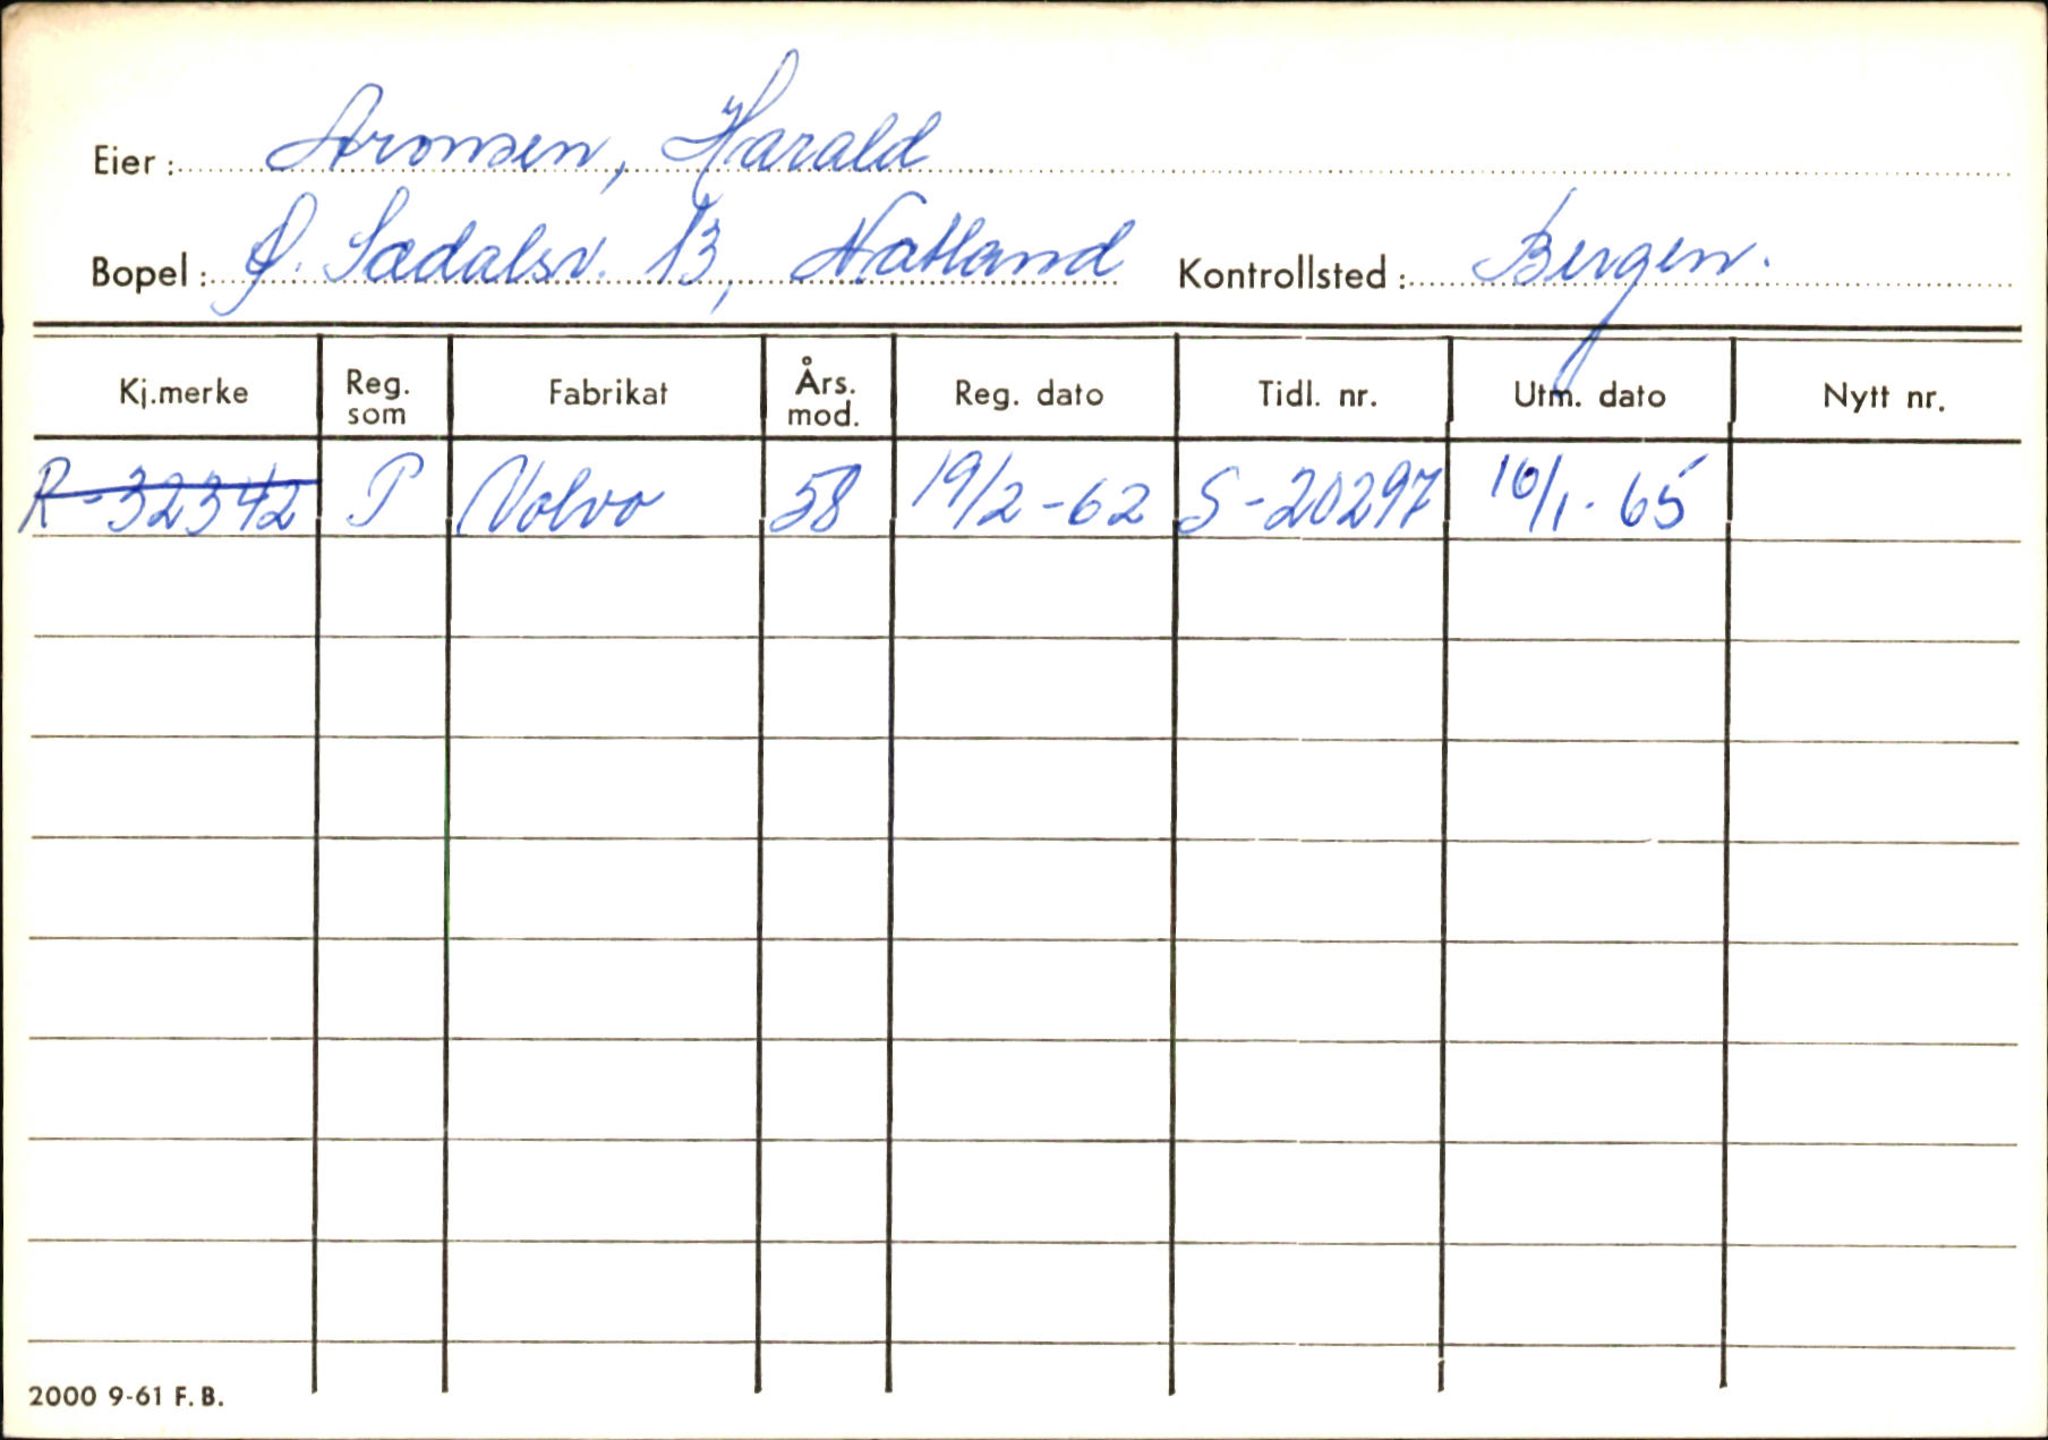 Eier: Aronsen, Harald
Bopel: Ø. Sædalsv. 13, Natland Kontrollsted: Bergen.
Kj.merke Reg. som Fabrikat Års. mod. Reg. dato Tidl. nr. Utm. dato Nytt nr.
R-32342 P Volvo 58 19/2-62 S-20297 16/1-65
2000 9-61 F.B.